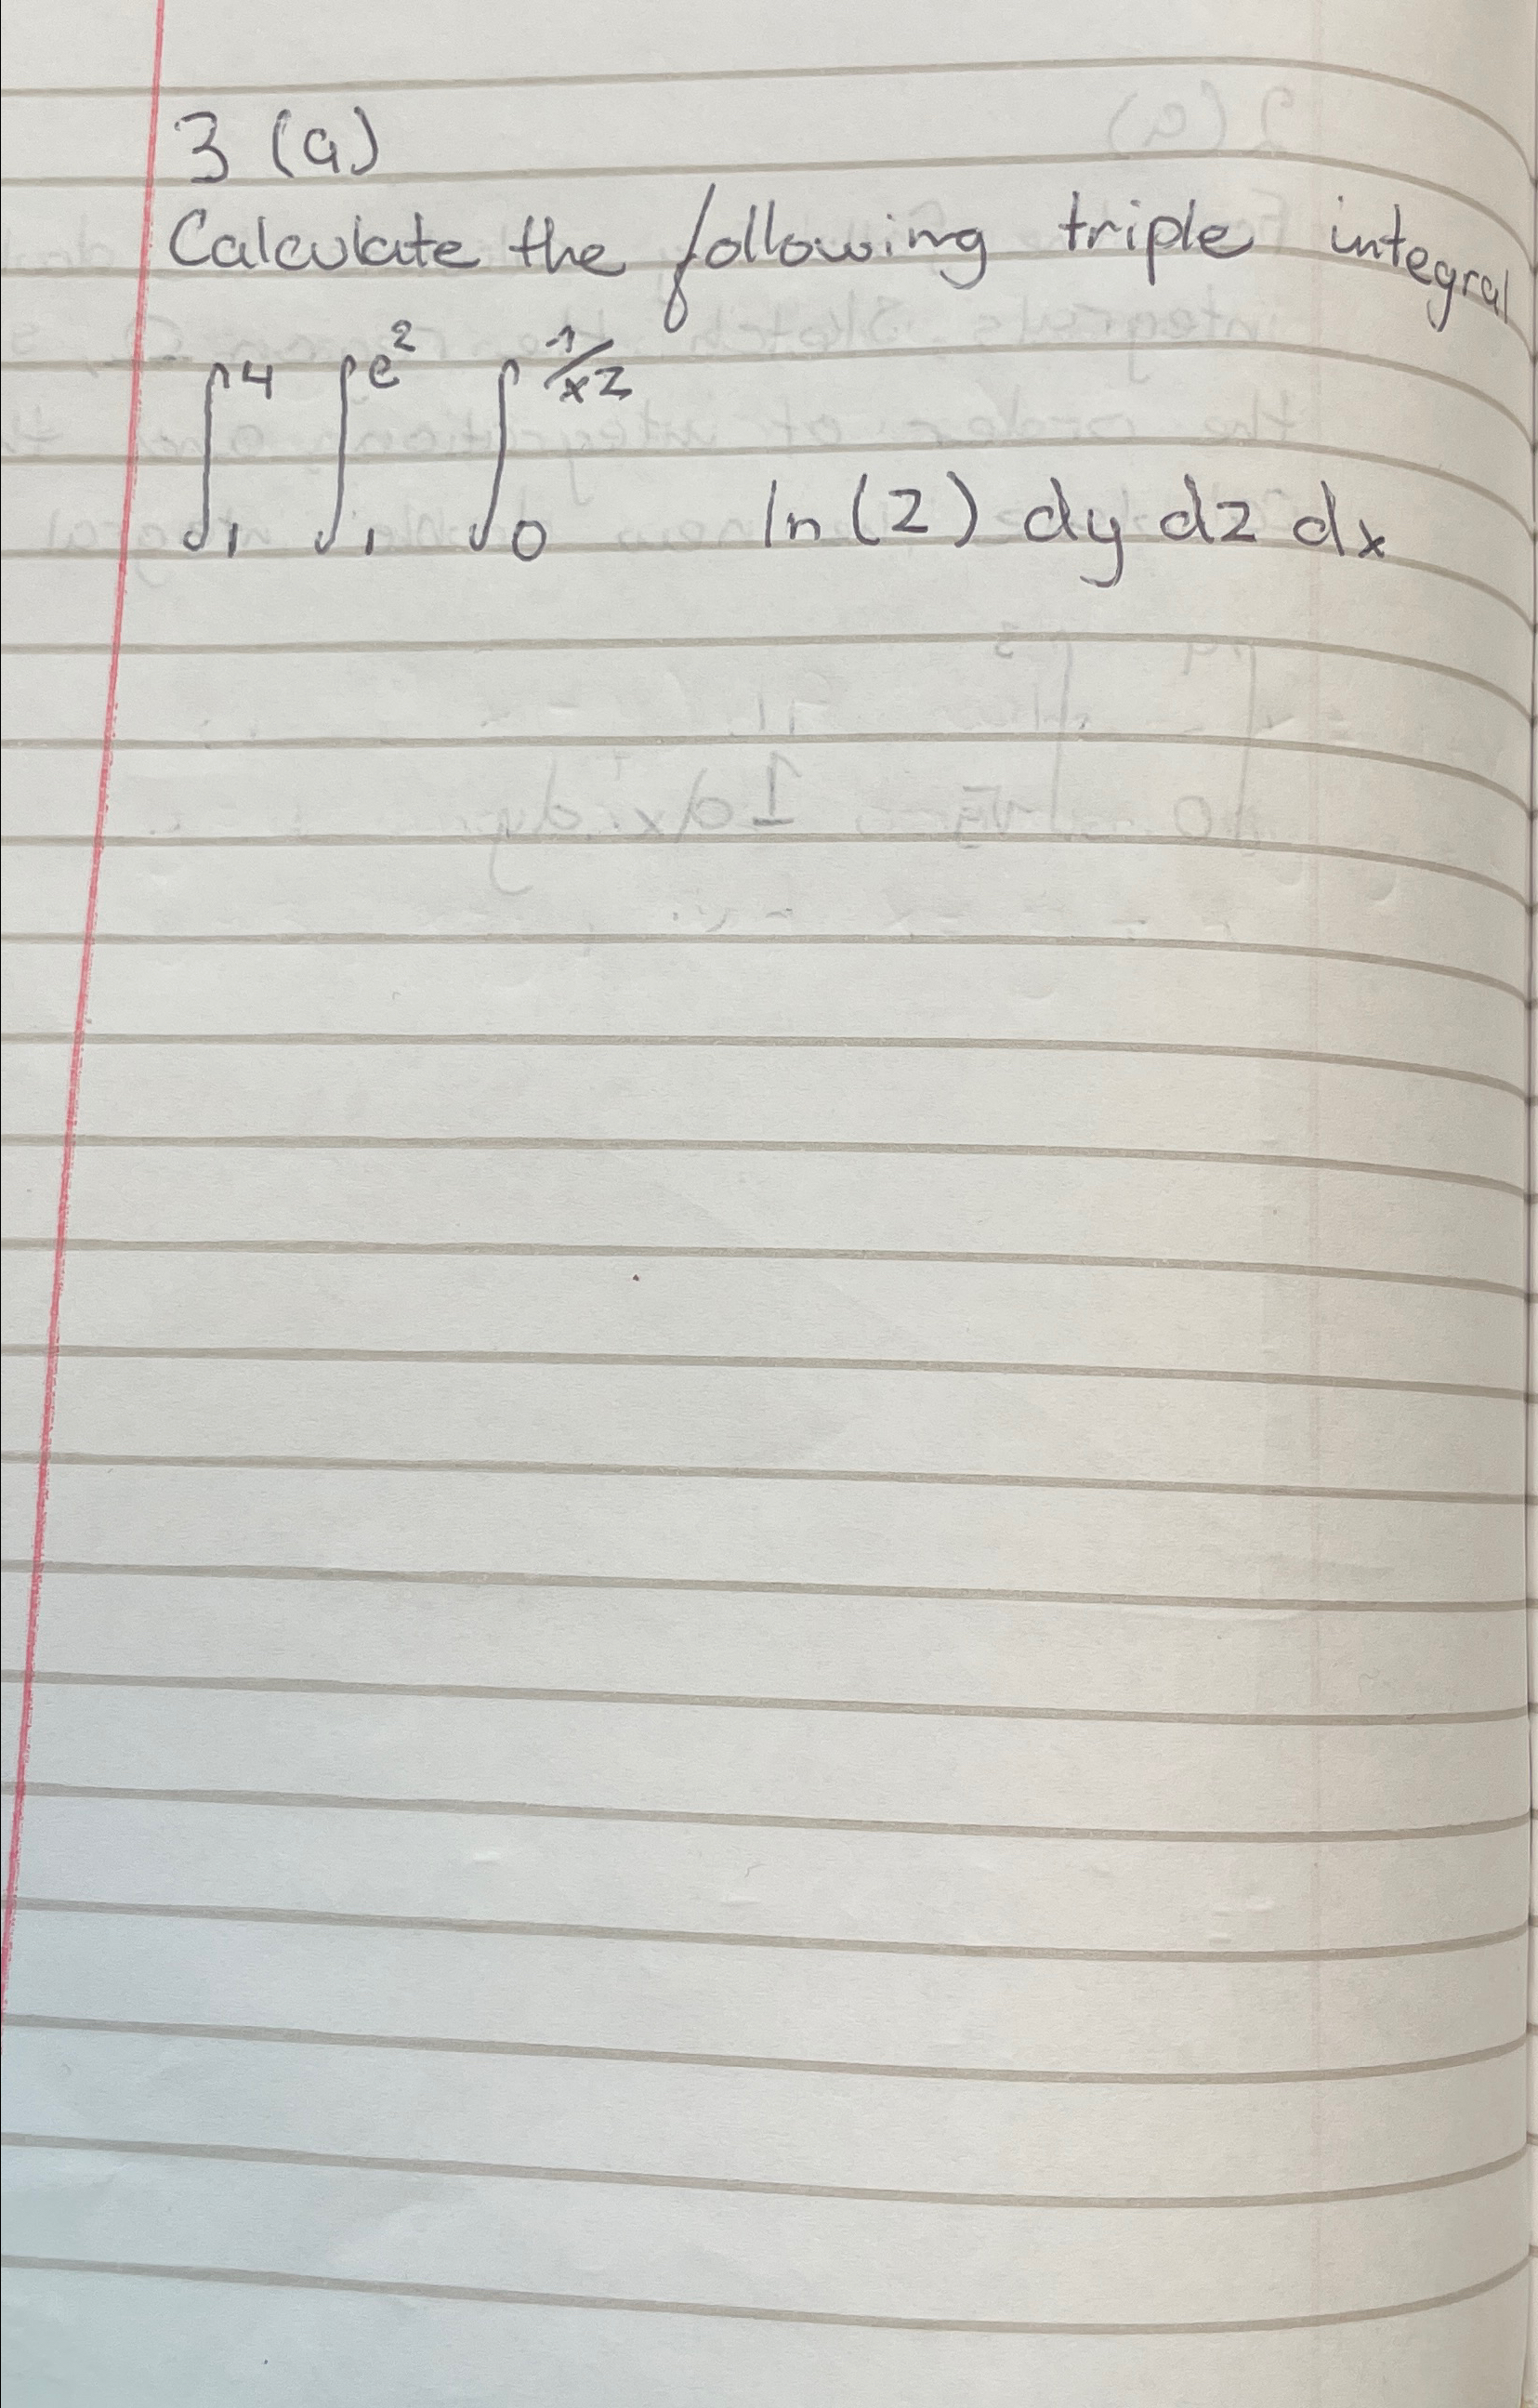 3 (a)
Calculate the following triple integral
∫₁⁴ ∫₁^e² ∫₀^1/xz ln(z) dy dz dx